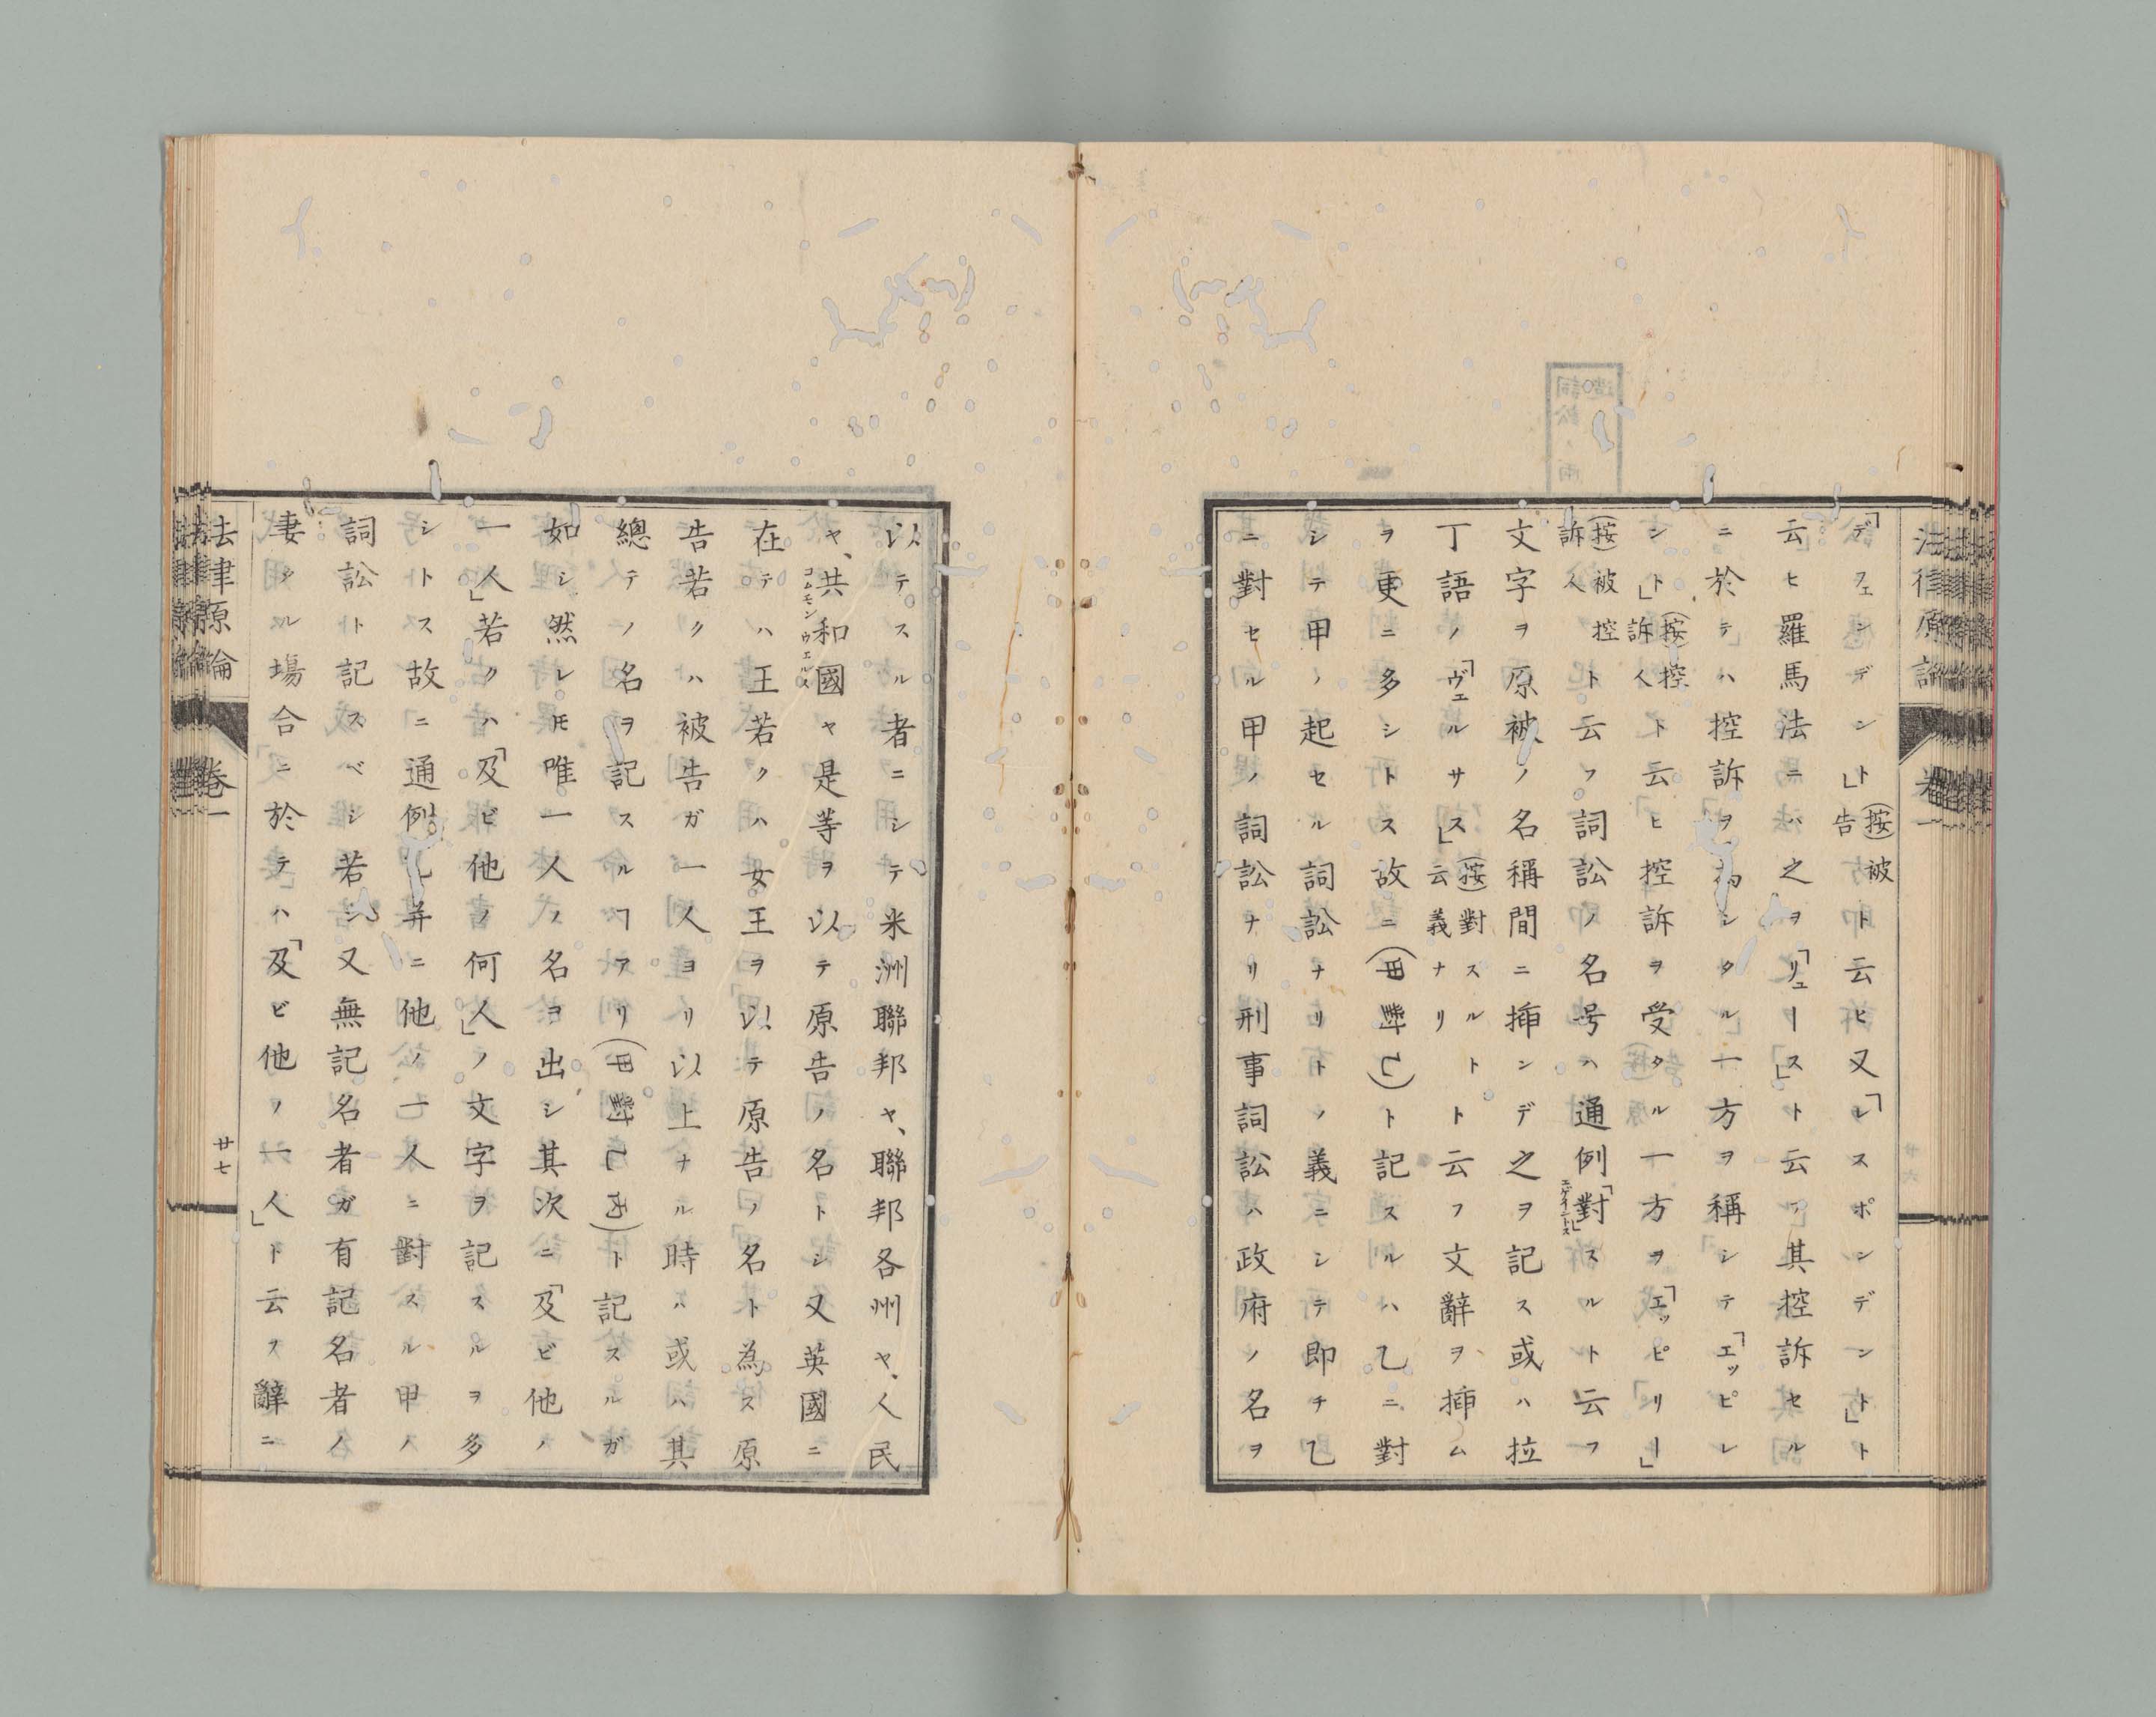 法律原論 卷一
「デフェンデント」(按)被告ト云ヒ又「レスポンデント」ト
云ヒ羅馬法ニハ之ヲ「リュース」ト云フ其控訴セル
ニ於テハ控訴ヲ シタル一方ヲ稱シテ「エッピレ
ント」(按)控訴人ト云ヒ控訴ヲ受タル一方ヲ「エッピリー」
(按)被控訴人ト云フ詞訟ノ名号ハ通例「對」エゲインストスルト云フ
文字ヲ原被ノ名稱間ニ挿ンデ之ヲ記ス或ハ拉
丁語ノ「ヴェルサス」(按)對スルト云義ナリト云フ文辭ヲ挿ム
ヲ更ニ多シトス故ニ(甲對乙)ト記スルハ乙ニ對
シテ甲ノ起セル詞訟ナリトノ義ニシテ即チ乙
ニ對セル甲ノ詞訟ナリ刑事詞訟ハ政府ノ名ヲ
以テスル者ニシテ米洲聯邦ヤ、聯邦各州ヤ、人民
ヤ、共和國コムモンウエルスヤ是等ヲ以テ原告ノ名トシ又英國ニ
在テハ王若クハ女王ヲ以テ原告ノ名ト為ス原
告若クハ被告ガ一人ヨリ以上ナル時ハ或ハ其
總テノ名ヲ記スルヿアリ(甲對乙丙)ト記スルガ
如シ然レ𪜈唯一人ノ名ヲ出シ其次ニ「及ビ他ノ
一人」若クハ「及ビ他ノ何人」ノ文字ヲ記スルヲ多
シトス故ニ通例 并ニ他ノ一人ニ對スル甲ノ
詞訟ト記スベシ若シ又無記名者ガ有記名者ノ
妻タル場合ニ於テハ「及ビ他ノ一人」ト云フ辭ニ
法律原論 卷一 廿七